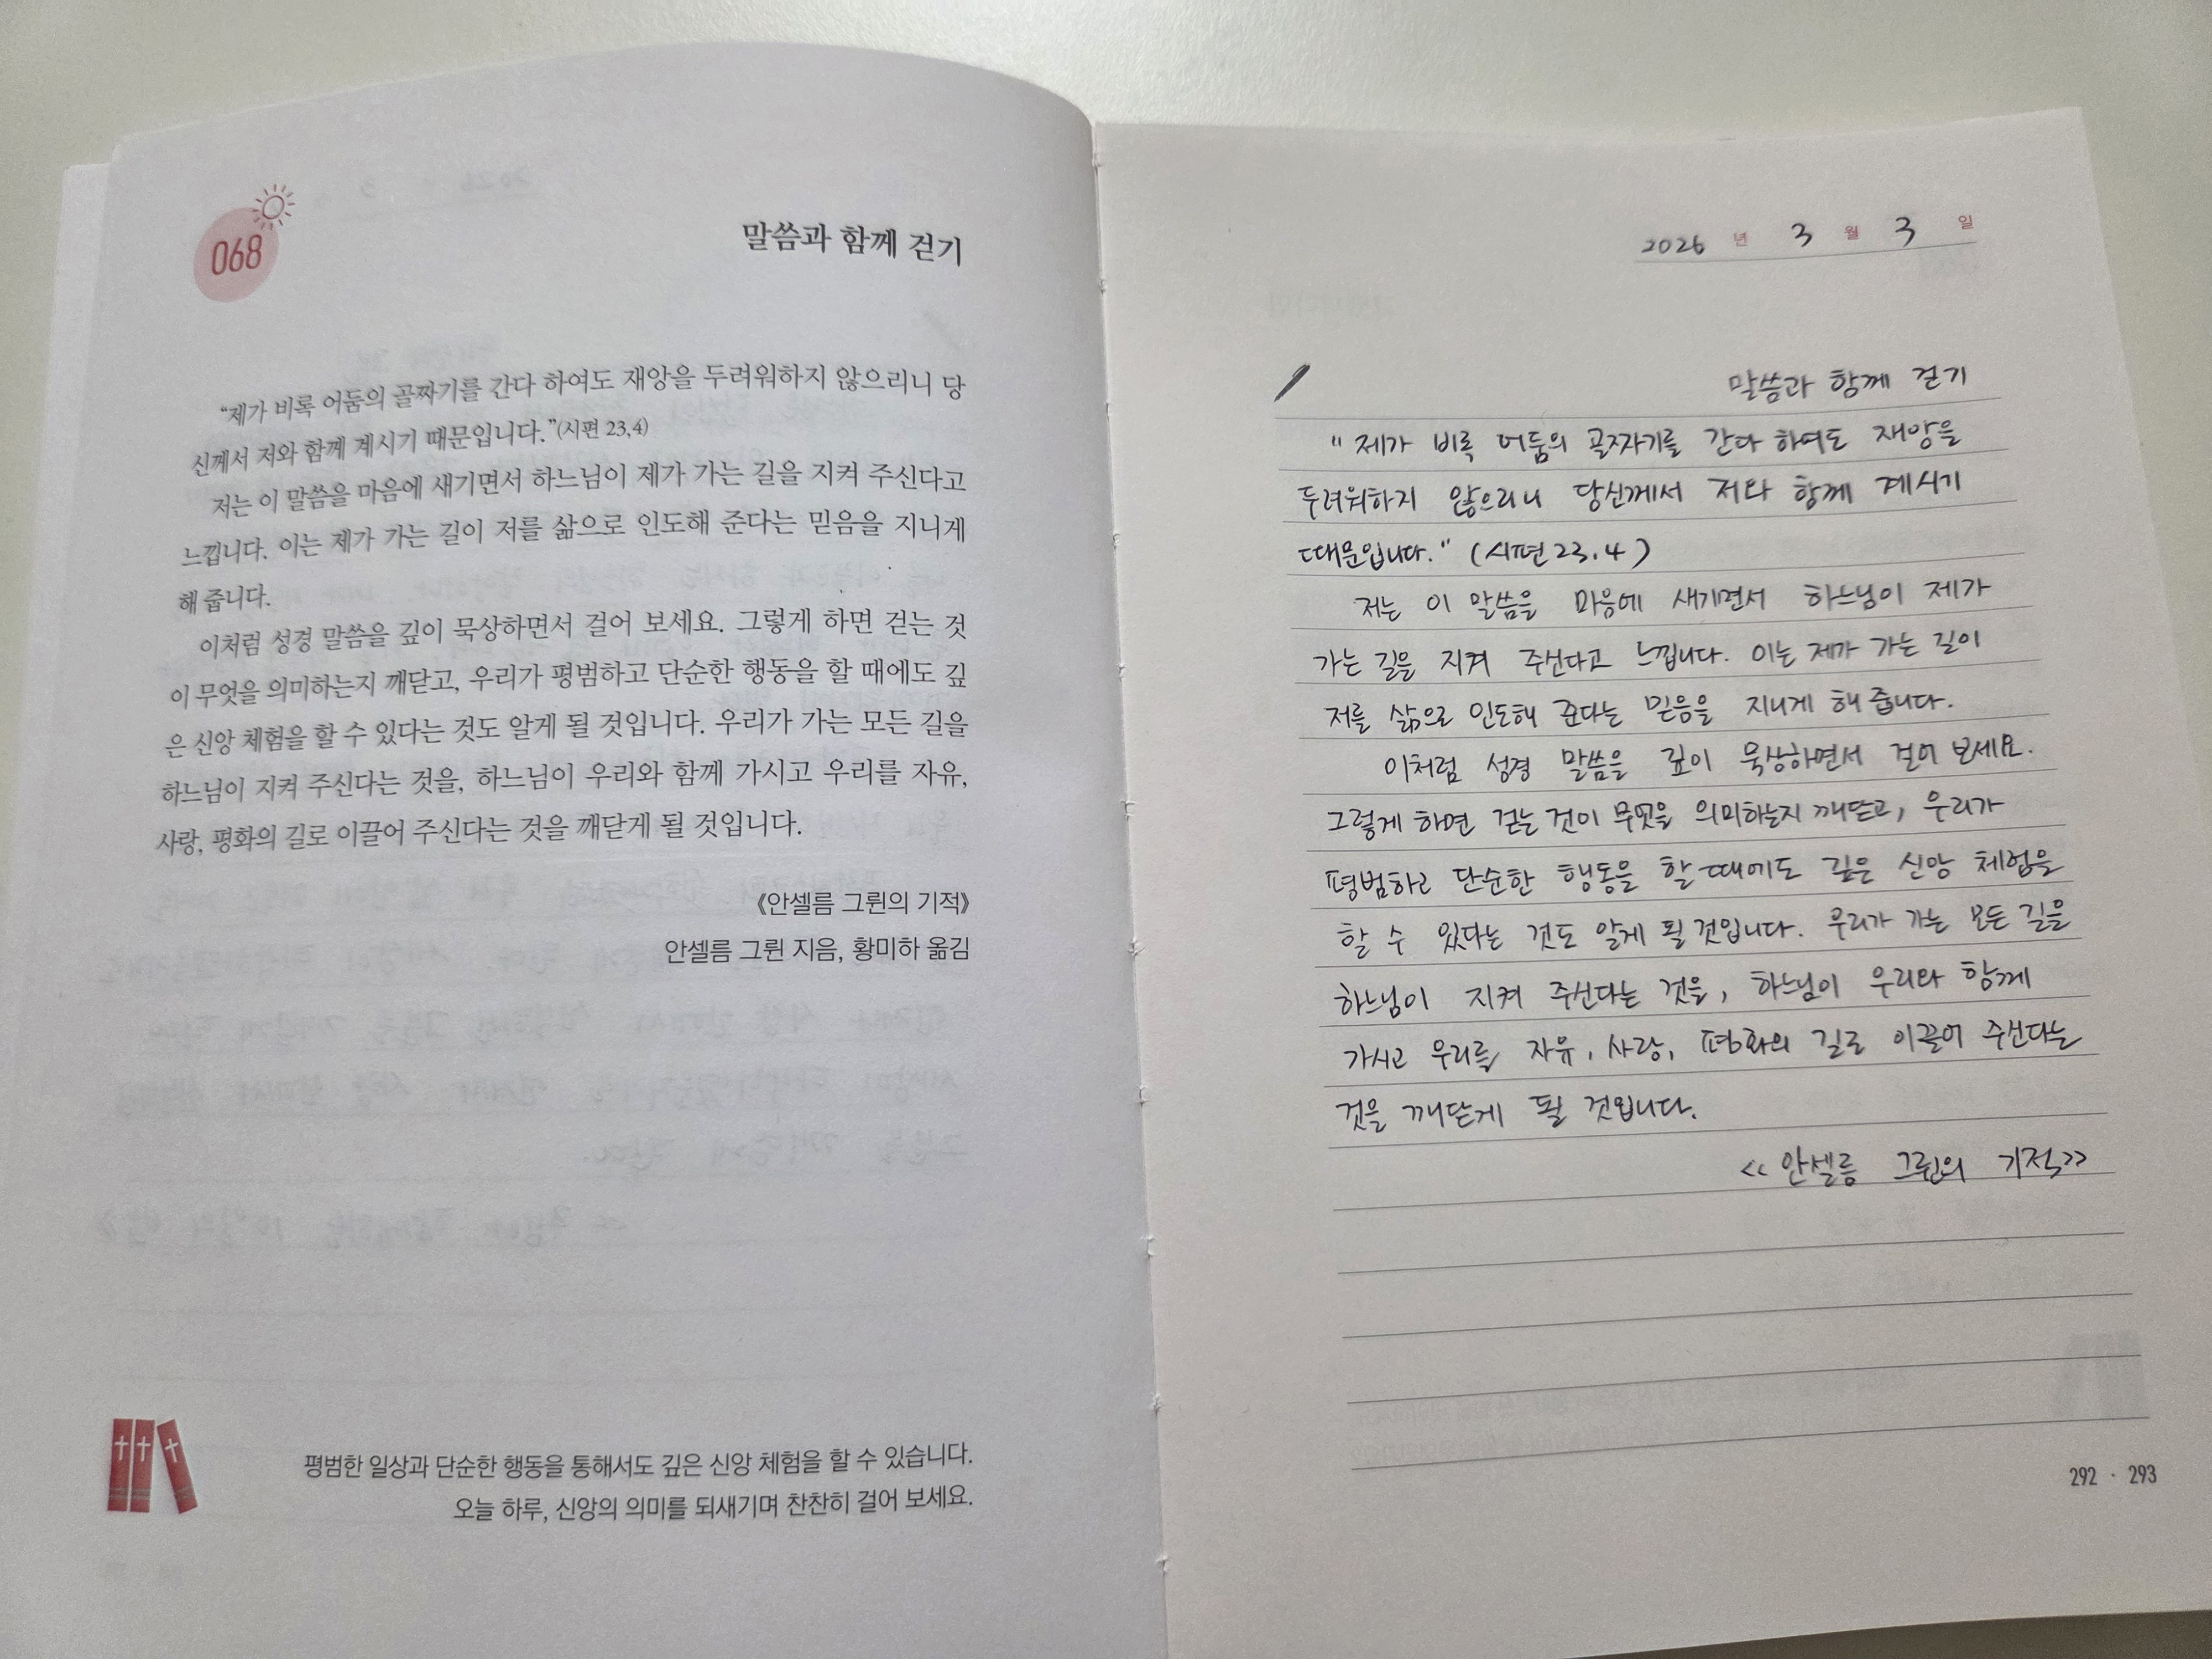 068
말씀과 함께 걷기
“제가 비록 어둠의 골짜기를 간다 하여도 재앙을 두려워하지 않으리니 당
신께서 저와 함께 계시기 때문입니다.”(시편 23,4)
저는 이 말씀을 마음에 새기면서 하느님이 제가 가는 길을 지켜 주신다고
느낍니다. 이는 제가 가는 길이 저를 삶으로 인도해 준다는 믿음을 지니게
해 줍니다.
이처럼 성경 말씀을 깊이 묵상하면서 걸어 보세요. 그렇게 하면 걷는 것
이 무엇을 의미하는지 깨닫고, 우리가 평범하고 단순한 행동을 할 때에도 깊
은 신앙 체험을 할 수 있다는 것도 알게 될 것입니다. 우리가 가는 모든 길을
하느님이 지켜 주신다는 것을, 하느님이 우리와 함께 가시고 우리를 자유,
사랑, 평화의 길로 이끌어 주신다는 것을 깨닫게 될 것입니다.
《안셀름 그륀의 기적》
안셀름 그륀 지음, 황미하 옮김
평범한 일상과 단순한 행동을 통해서도 깊은 신앙 체험을 할 수 있습니다.
오늘 하루, 신앙의 의미를 되새기며 찬찬히 걸어 보세요.
2026 년 3 월 3 일
말씀과 함께 걷기
" 제가 비록 어둠의 골짜기를 간다 하여도 재앙을
두려워하지 않으리니 당신께서 저와 함께 계시기
때문입니다." (시편 23.4)
저는 이 말씀을 마음에 새기면서 하느님이 제가
가는 길을 지켜 주신다고 느낍니다. 이는 제가 가는 길이
저를 삶으로 인도해 준다는 믿음을 지니게 해 줍니다.
이처럼 성경 말씀을 깊이 묵상하면서 걸어 보세요.
그렇게 하면 걷는 것이 무엇을 의미하는지 깨닫고, 우리가
평범하고 단순한 행동을 할 때에도 깊은 신앙 체험을
할 수 있다는 것도 알게 될 것입니다. 우리가 가는 모든 길을
하느님이 지켜 주신다는 것을, 하느님이 우리와 함께
가시고 우리를 자유, 사랑, 평화의 길로 이끌어 주신다는
것을 깨닫게 될 것입니다.
<< 안셀름 그륀의 기적>>
292 · 293